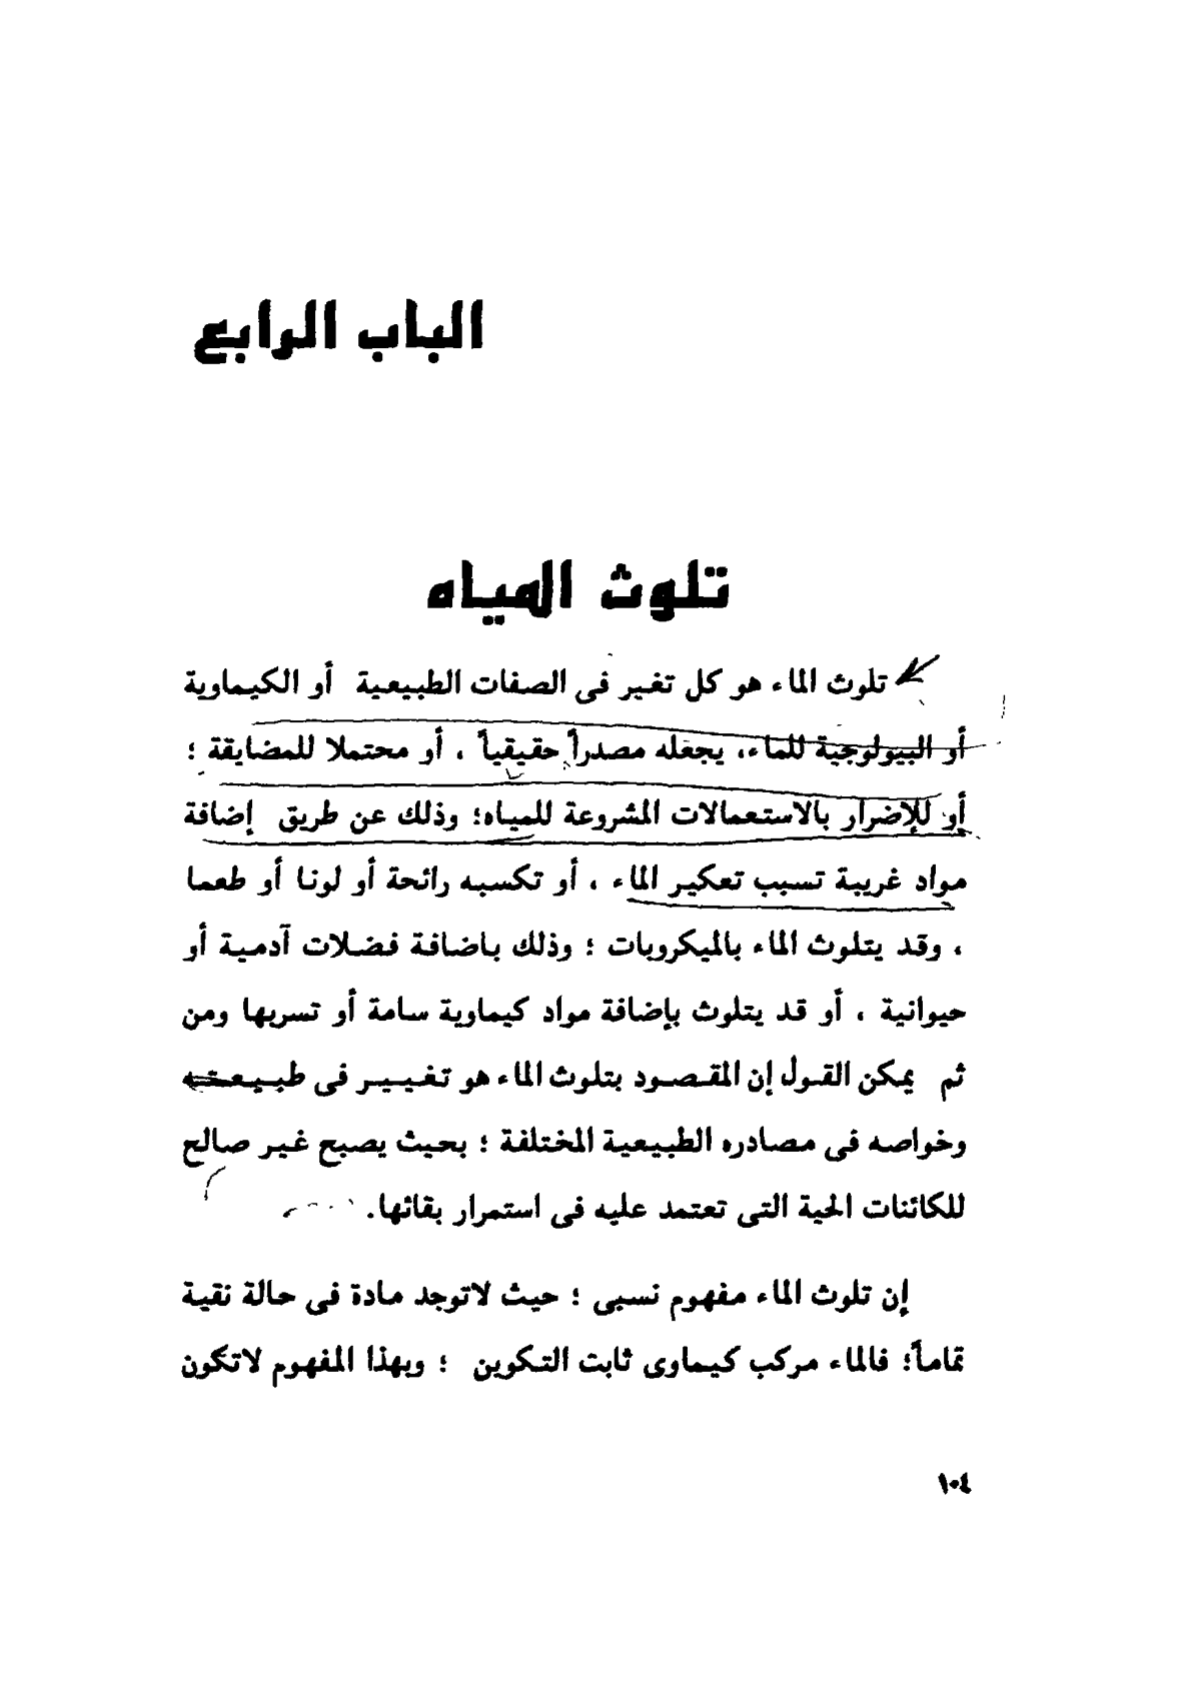 الباب الرابع
تلوث المياه
تلوث الماء هو كل تغير فى الصفات الطبيعية أو الكيماوية
أو البيولوجية للماء، يجعله مصدراً حقيقياً ، أو محتملا للمضايقة ؛
أو للإضرار بالاستعمالات المشروعة للمياه؛ وذلك عن طريق إضافة
مواد غريبة تسبب تعكير الماء ، أو تكسبه رائحة أو لونا أو طعما
، وقد يتلوث الماء بالميكروبات ؛ وذلك باضافة فضلات آدمية أو
حيوانية ، أو قد يتلوث بإضافة مواد كيماوية سامة أو تسربها ومن
ثم يمكن القول إن المقصود بتلوث الماء هو تغيير فى طبيعته
وخواصه فى مصادره الطبيعية المختلفة ؛ بحيث يصبح غير صالح
للكائنات الحية التى تعتمد عليه فى استمرار بقائها.
إن تلوث الماء مفهوم نسبى ؛ حيث لاتوجد مادة فى حالة نقية
تماماً؛ فالماء مركب كيماوى ثابت التكوين ؛ وبهذا المفهوم لاتكون
١٠٤